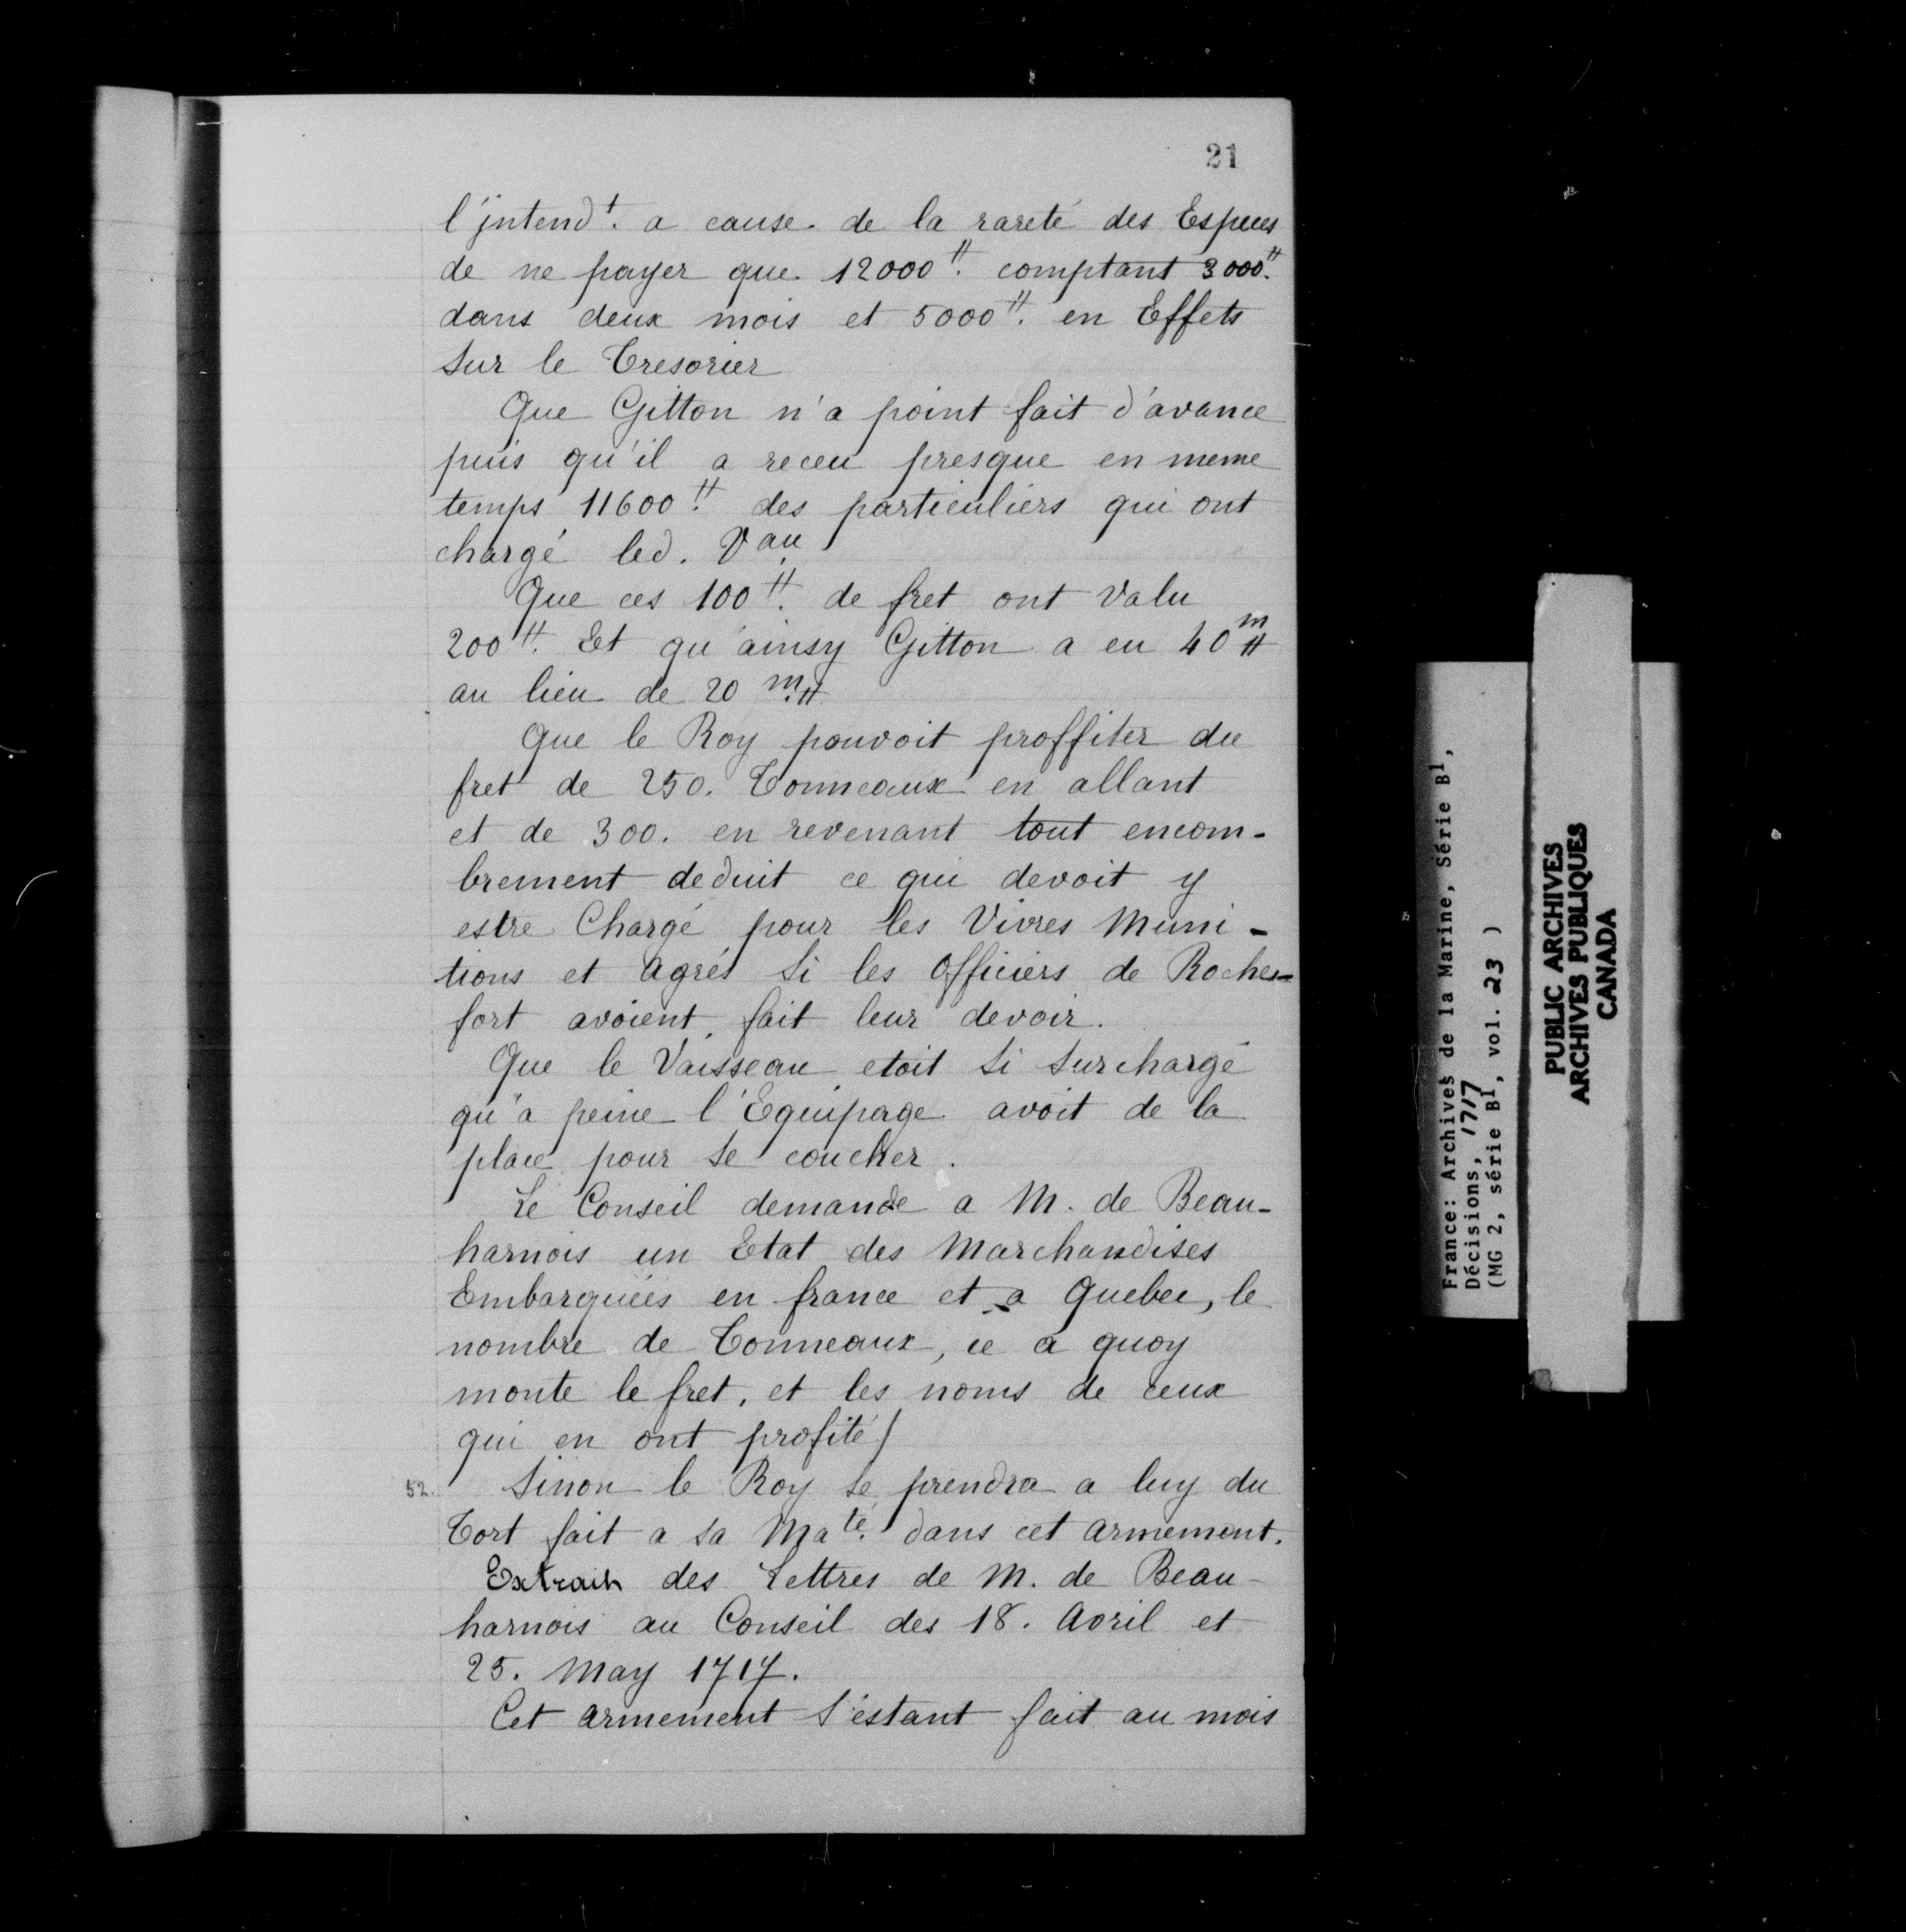 21
l'jntend.t a cause de la rareté des Especes
de ne payer que 12000.tt comptant 3000.tt
dans deux mois et 5000.tt en Effets
sur le Tresorier
Que Gitton n'a point fait d'avance
puis qu'il a receu presque en meme
temps 11600.tt des particuliers qui ont
chargé led. V.au
Que ces 100.tt de fret ont valu
200.tt Et qu'ainsy Gitton a eu 40 m tt
au lieu de 20 m. tt
Que le Roy pouvoit proffiter du
fret de 250. Tonneaux en allant
et de 300. en revenant tout encom-
brement deduit ce qui devoit y
estre Chargé pour les Vivres Muni-
tions et agrés si les officiers de Roche-
fort avoient fait leur devoir.
Que le Vaisseau etoit si surchargé
qu'a peine l'Equipage avoit de la
place pour se coucher.
Le Conseil demande a M. de Beau-
harnois un Etat des Marchandises
Embarquées en france et a Quebec, le
nombre de Tonneaux, ce a quoy
monte le fret, et les noms de ceux
qui en ont profité/
52. Sinon le Roy se prendra a luy du
Tort fait a sa Ma.té dans cet armement.
Extrait des Lettres de M. de Beau-
harnois au Conseil des 18. Avril et
25. May 1717.
Cet armement s'estant fait au mois
France: Archives de la Marine, Série B1,
Décisions, 1717
(MG 2, série B1, vol. 23 )
PUBLIC ARCHIVES
ARCHIVES PUBLIQUES
CANADA